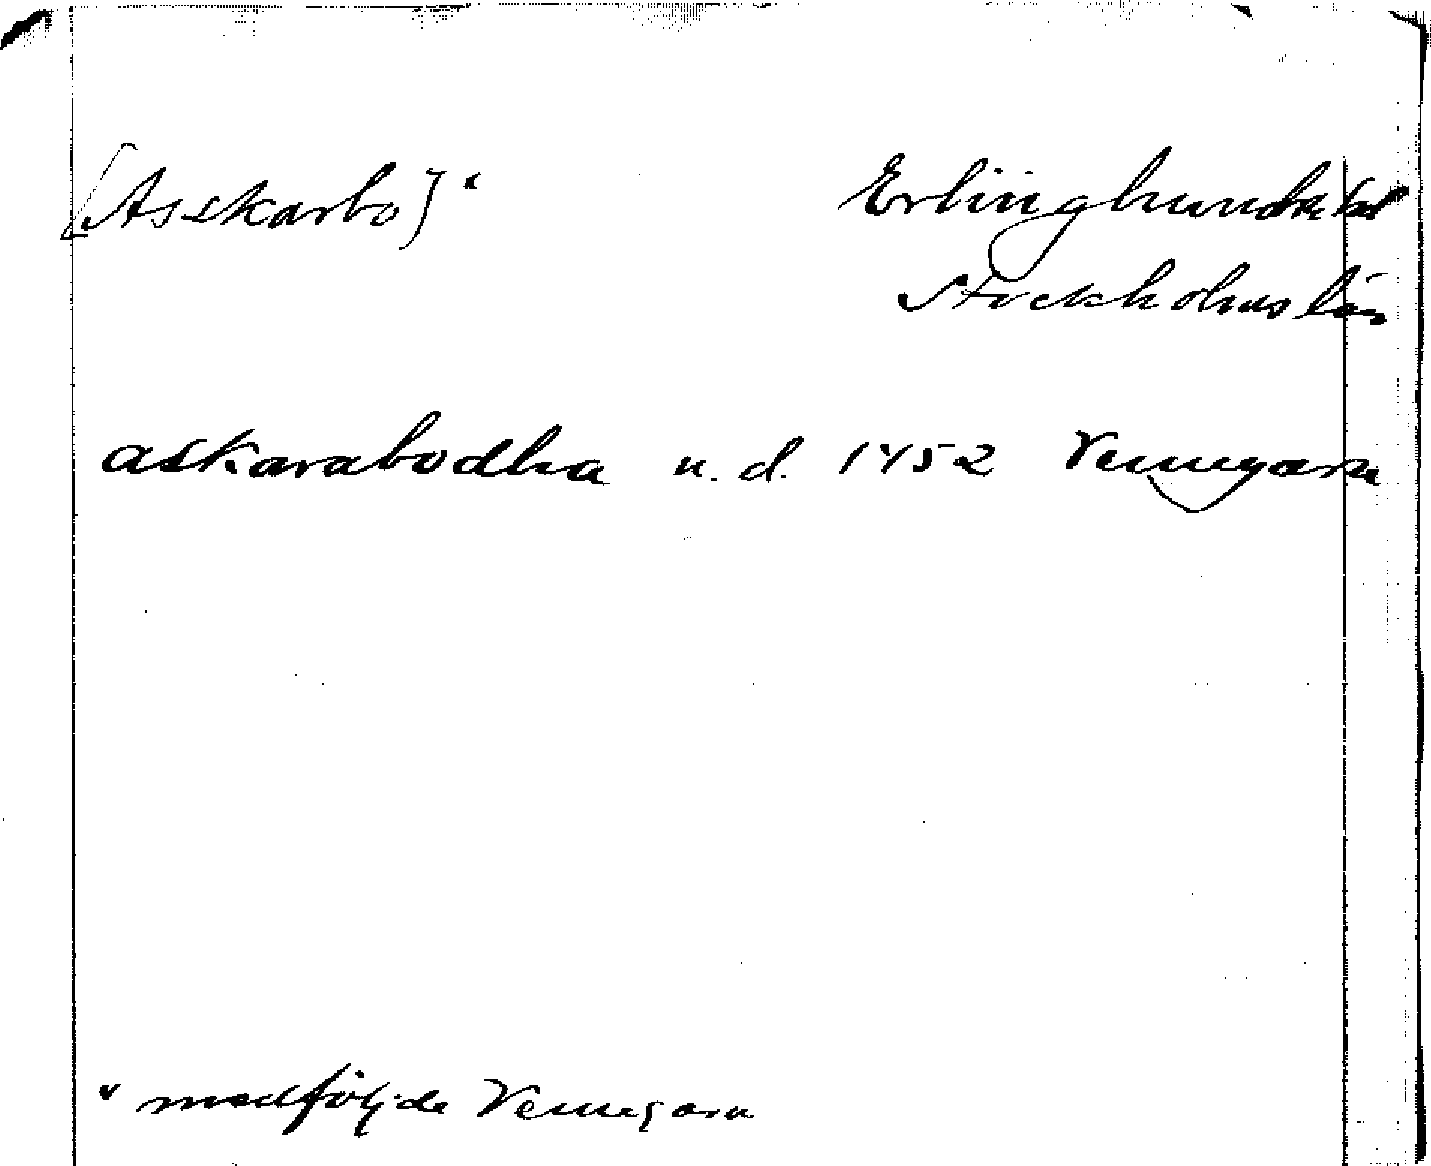 [Asskarbo]ˣ Erlinghundra hd
Stockholms län
askarabodha u. d. 1452 Vennegarn
ˣ medföljde Vennegarn